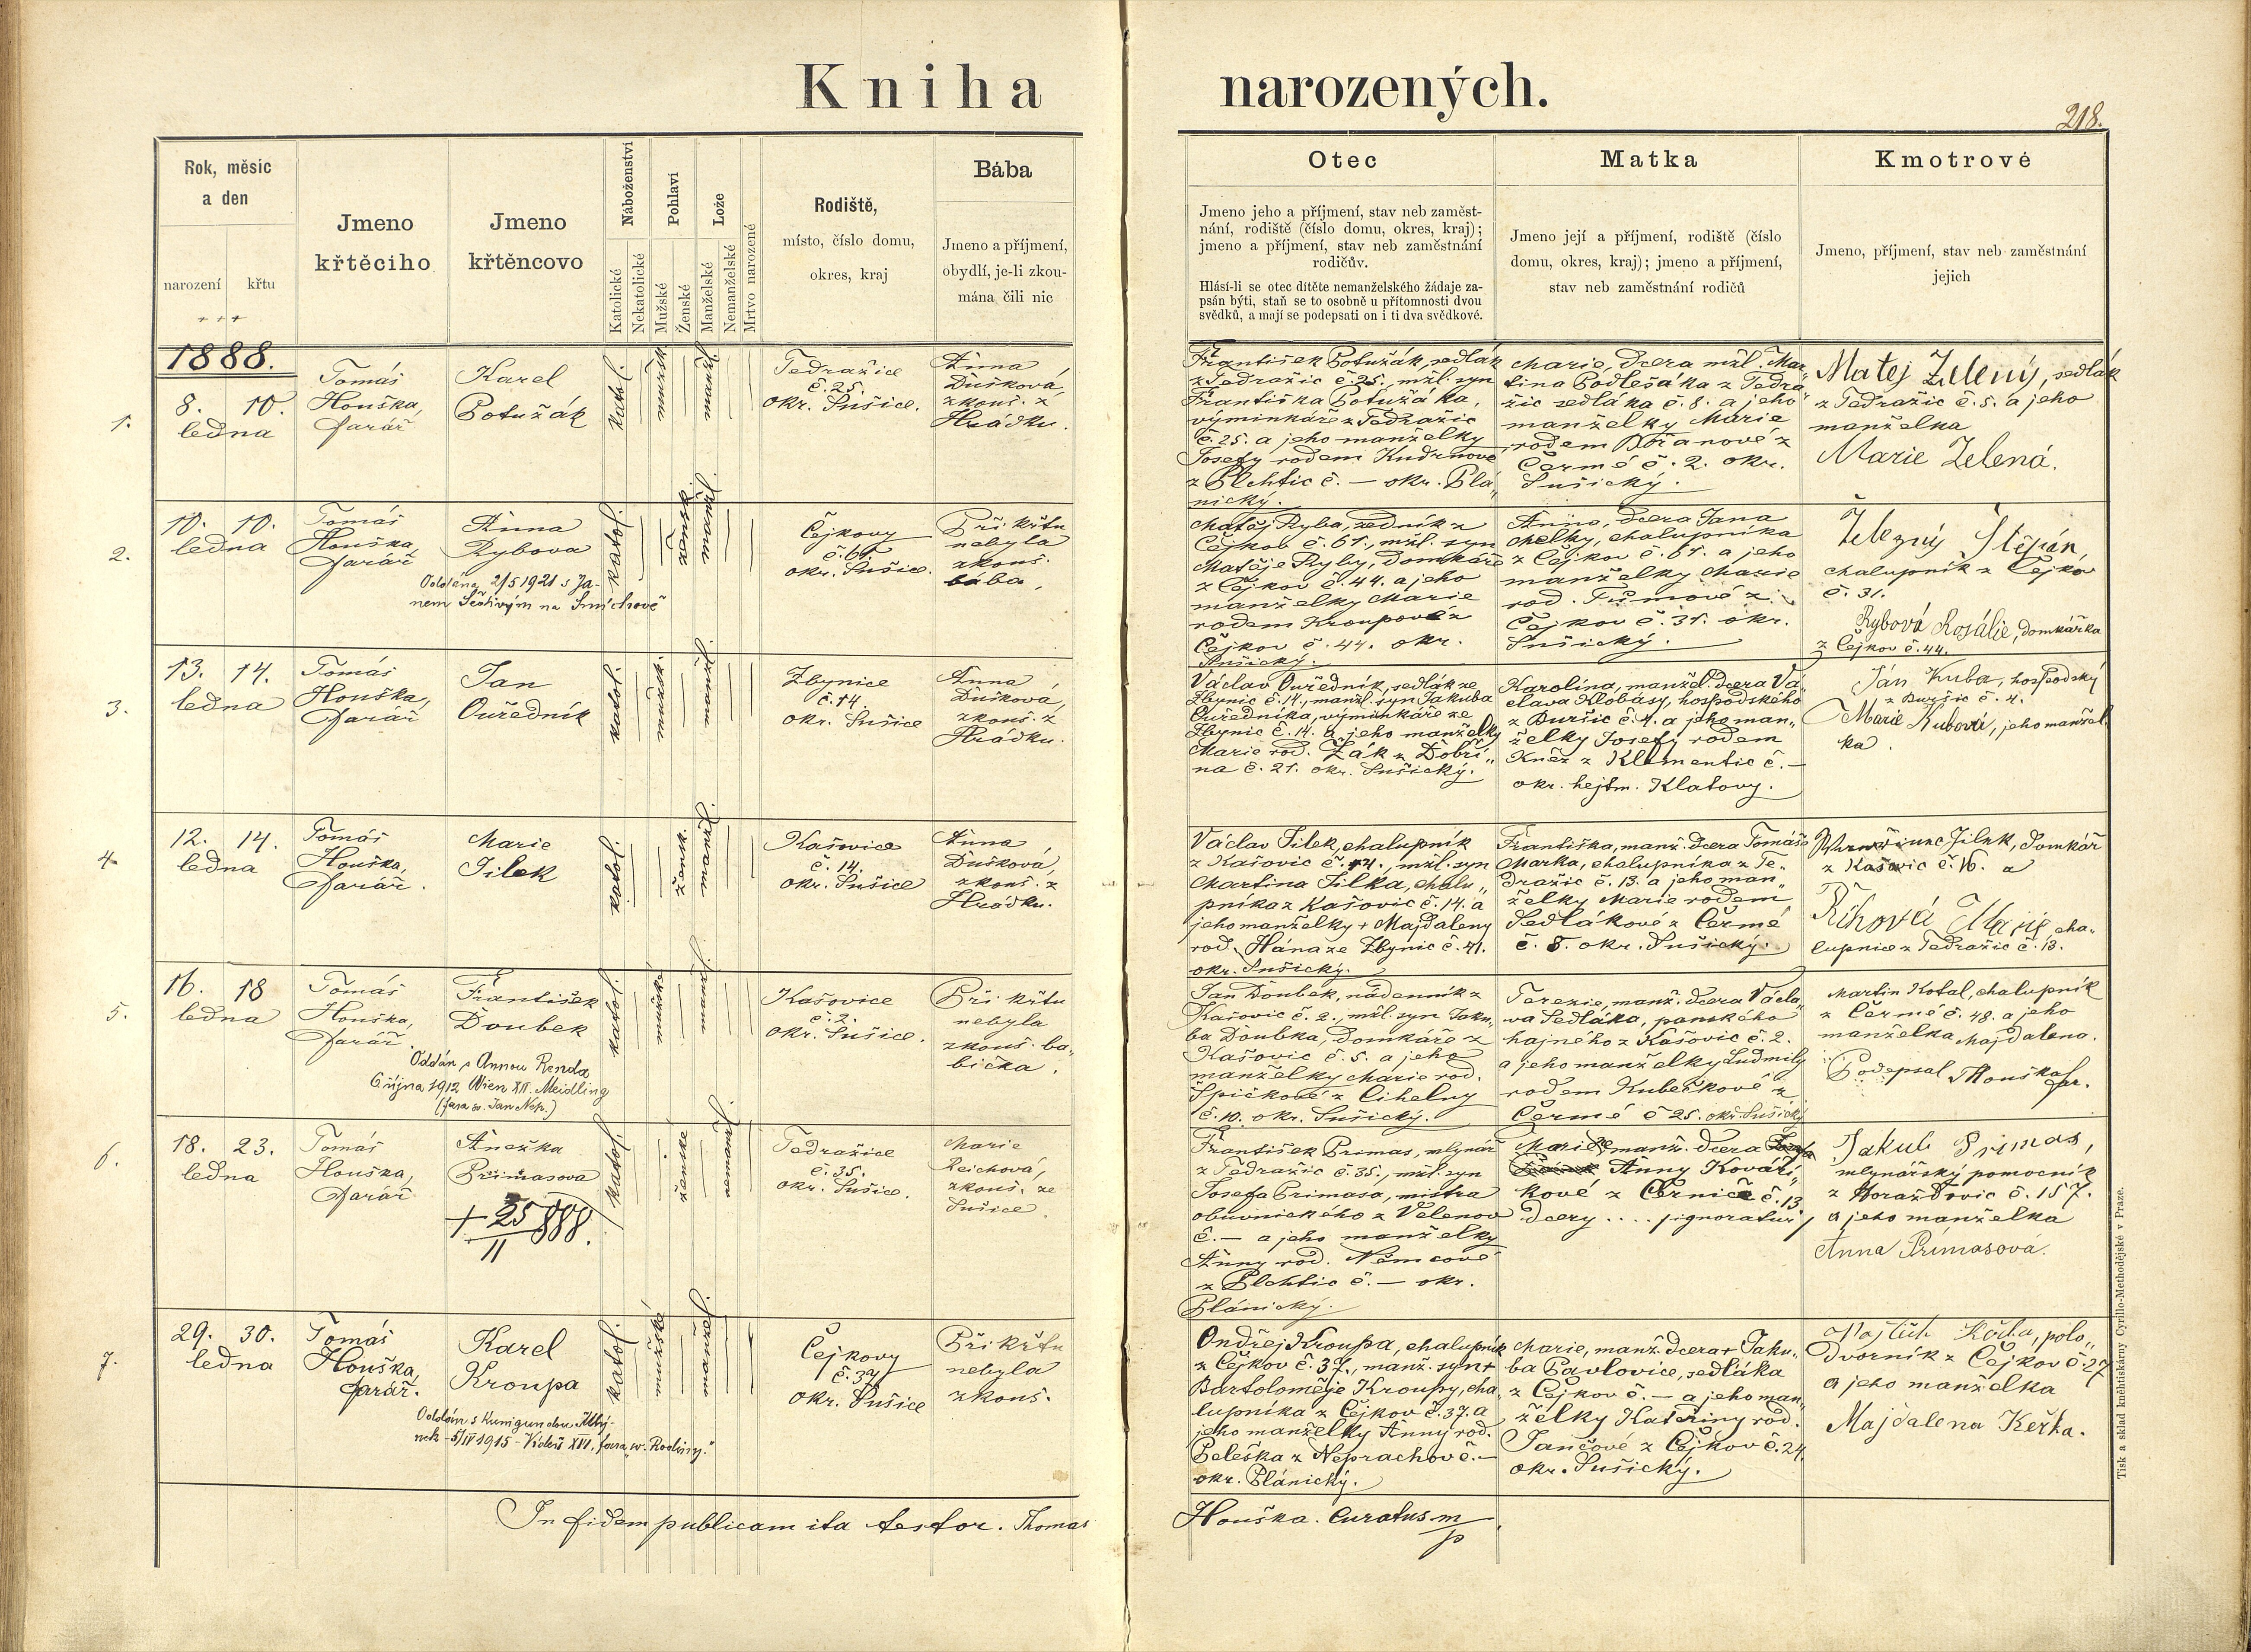 Kniha narozených.
218.
Rok, měsíc
a den
narození
křtu
Jmeno
křtěciho
Jmeno
křtěncovo
Náboženství
Katolické
Nekatolické
Pohlaví
Mužské
Ženské
Lože
Manželské
Nemanželské
Mrtvo narozené
Rodiště,
místo, číslo domu,
okres, kraj
Bába
Jmeno a příjmení,
obydlí, je-li zkou-
mána čili nic
Otec
Jmeno jeho a příjmení, stav neb zaměst-
nání, rodiště (číslo domu, okres, kraj);
jmeno a příjmení, stav neb zaměstnání
rodičův.
Hlásí-li se otec dítěte nemanželského žádaje za-
psán býti, staň se to osobně u přítomnosti dvou
svědků, a mají se podepsati on i ti dva svědkové.
Matka
Jmeno její a příjmení, rodiště (číslo
domu, okres, kraj); jmeno a příjmení,
stav neb zaměstnání rodičů
Kmotrové
Jmeno, příjmení, stav neb zaměstnání
jejich
1888.
1.
8. 10.
ledna
Tomáš
Houška,
farář
Karel
Potužák
katol.
mužsk.
manžel.
Tedražice
č. 25.
okr. Sušice.
Anna
Dušková,
zkouš. z
Hrádku.
František Potužák, sedlák
z Tedražic č. 25., mžl. syn
Františka Potužáka,
výminkáře z Tedražic
č. 25. a jeho manželky
Josefy rodem Kudrnové
z Plchtic č. — okr. Plá„
nický.
Marie, dcera mžl. Mar„
tina Podlešáka z Tedra„
žic sedláka č. 8. a jeho
manželky Marie
rodem Bořanové z
Čermé č. 2. okr.
Sušický.
Matej Zelený, sedlák
z Tedražic č. 5. a jeho
manželka
Marie Zelená.
2.
10. 10.
ledna
Tomáš
Houška
farář
Anna
Rybova
Oddána 2/5 1921 s Ja-
nem na Smíchově
katol.
žensk.
manžel.
Čejkovy
č. 61.
okr. Sušice.
Při křtu
nebyla
zkouš.
bába.
Matěj Ryba, zedník z
Čejkov č. 61., mžl. syn
Matěje Ryby, domkáře
z Čejkov č. 44. a jeho
manželky Marie
rodem Kroupové z
Čejkov č. 44. okr.
Sušický.
Anna, dcera Jana
Melky, chalupníka
z Čejkov č. 61. a jeho
manželky Marie
rod. Tůmové z
Čejkov č. 31. okr.
Sušický.
Železný Štěpán,
chalupník z Čejkov
č. 31.
Rybová Rosálie, domkářka
z Čejkov č. 44.
3.
13. 14.
ledna
Tomáš
Houška,
farář
Jan
Ouředník
katol.
mužsk.
manžel.
Zbynice
č. 14.
okr. Sušice
Anna
Dušková,
zkouš. z
Hrádku.
Václav Ouředník, sedlák ze
Zbynic č. 14., manžl. syn Jakuba
Ouředníka, výminkáře ze
Zbynic č. 14. a jeho manželky
Marie rod. Žák z Dobří„
na č. 21. okr. Sušický.
Karolina, manžel. dcera Vá„
clava Klobásy, hospodského
z Buršic č. 4. a jeho man„
želky Josefy rodem
Kněz z Klementic č. —
okr. hejtm. Klatovy.
Ján Kuba, hospodský
z Buršic č. 4.
Marie Kubová, jeho manžel
ka.
4
12. 14.
ledna
Tomáš
Houška,
farář.
Marie
Jilek
katol.
žensk.
manžel.
Kašovice
č. 14.
okr. Sušice
Anna
Dušková,
zkouš. z
Hrádku.
Václav Jilek, chalupník
z Kašovic č. 14., mžl. syn
Martina Jilka, chalu„
pníka z Kašovic č. 14. a
jeho manželky + Majdaleny
rod. Hána ze Zbynic č. 41.
okr. Sušický.
Františka, manž. dcera Tomáše
Marka, chalupníka z Te„
dražic č. 13. a jeho man„
želky Marie rodem
Sedlákové z Čermé
č. 8. okr. Sušický.
Jilek, domkář
z Kašovic č. 16. a
Říhová Marie cha„
lupnice z Tedražic č. 13.
5.
16. 18
ledna
Tomáš
Houška,
farář.
František
Doubek
Oddán s Annou Renda
6. října 1912 Wien XII. Meidling
(fara sv. Jan Nep.)
katol.
mužské
manžel
Kašovice
č. 2.
okr. Sušice.
Při křtu
nebyla
zkouš. ba„
bička.
Jan Doubek, nádenník z
Kašovic č. 2., mžl. syn Jaku„
ba Doubka, domkáře z
Kašovic č. 5. a jeho
manželky Marie rod.
Špičkové z Cihelny
č. 10. okr. Sušický.
Terezie, manž. dcera Václa„
va Sedláka, panského
hajného z Kašovic č. 2.
a jeho manželky Ludmily
rodem Kubečkové z
Čermé č 25. okr. Sušický
Martin Kotal, chalupník
z Čermé č. 48. a jeho
manželka Majdalena.
Podepsal THouška far.
6.
18. 23.
ledna
Tomáš
Houška,
farář
Anežka
Primasova
+ 25/11 888.
katol.
ženské
manžel
Tedražice
č. 35.
okr. Sušice.
Marie
Reichová,
zkouš. ze
Sušice.
František Primas, mlynář
z Tedražic č. 35., mžl. syn
Josefa Primasa, mistra
obuvnického z Velenov
č. — a jeho manželky
Anny rod. Němcové
z Plchtic č. — okr.
Plánický.
Marie, manž. dcera
Anny Kováří„
kové z Černice č. 13
dcery .... /ignoratur/
Jakub Primas,
mlynářský pomocník
z Horažďovic č. 157.
a jeho manželka
Anna Primasová.
7.
29. 30.
ledna
Tomáš
Houška,
farář.
Karel
Kroupa
Oddán s Kunigundou
nek - 5/IV 1915 - Vídeň XVI. fara "sv. Rodiny."
katol.
mužské
manžel.
Čejkovy
č. 37
okr. Sušice
Při křtu
nebyla
zkouš.
Ondřej Kroupa, chalupník
z Čejkov č. 37., manž. syn +
Bartoloměje Kroupy, cha„
lupníka z Čejkov č. 37. a
jeho manželky Anny rod.
Beleška z Neprachov č. —
okr. Plánický.
Marie, manž. dcera + Jaku„
ba Pavlovice, sedláka
z Čejkov č. — a jeho man„
želky Kateřiny rod.
Jančové z Čejkov č. 24.
okr. Sušický.
polo„
dvorník z Čejkov č. 27
a jeho manželka
Majdalena Keřka.
In fidem publicam ita testor. Thomas Houška. Curatus m/p
Tisk a sklad knihtiskárny Cyrillo-Methodějské v Praze.